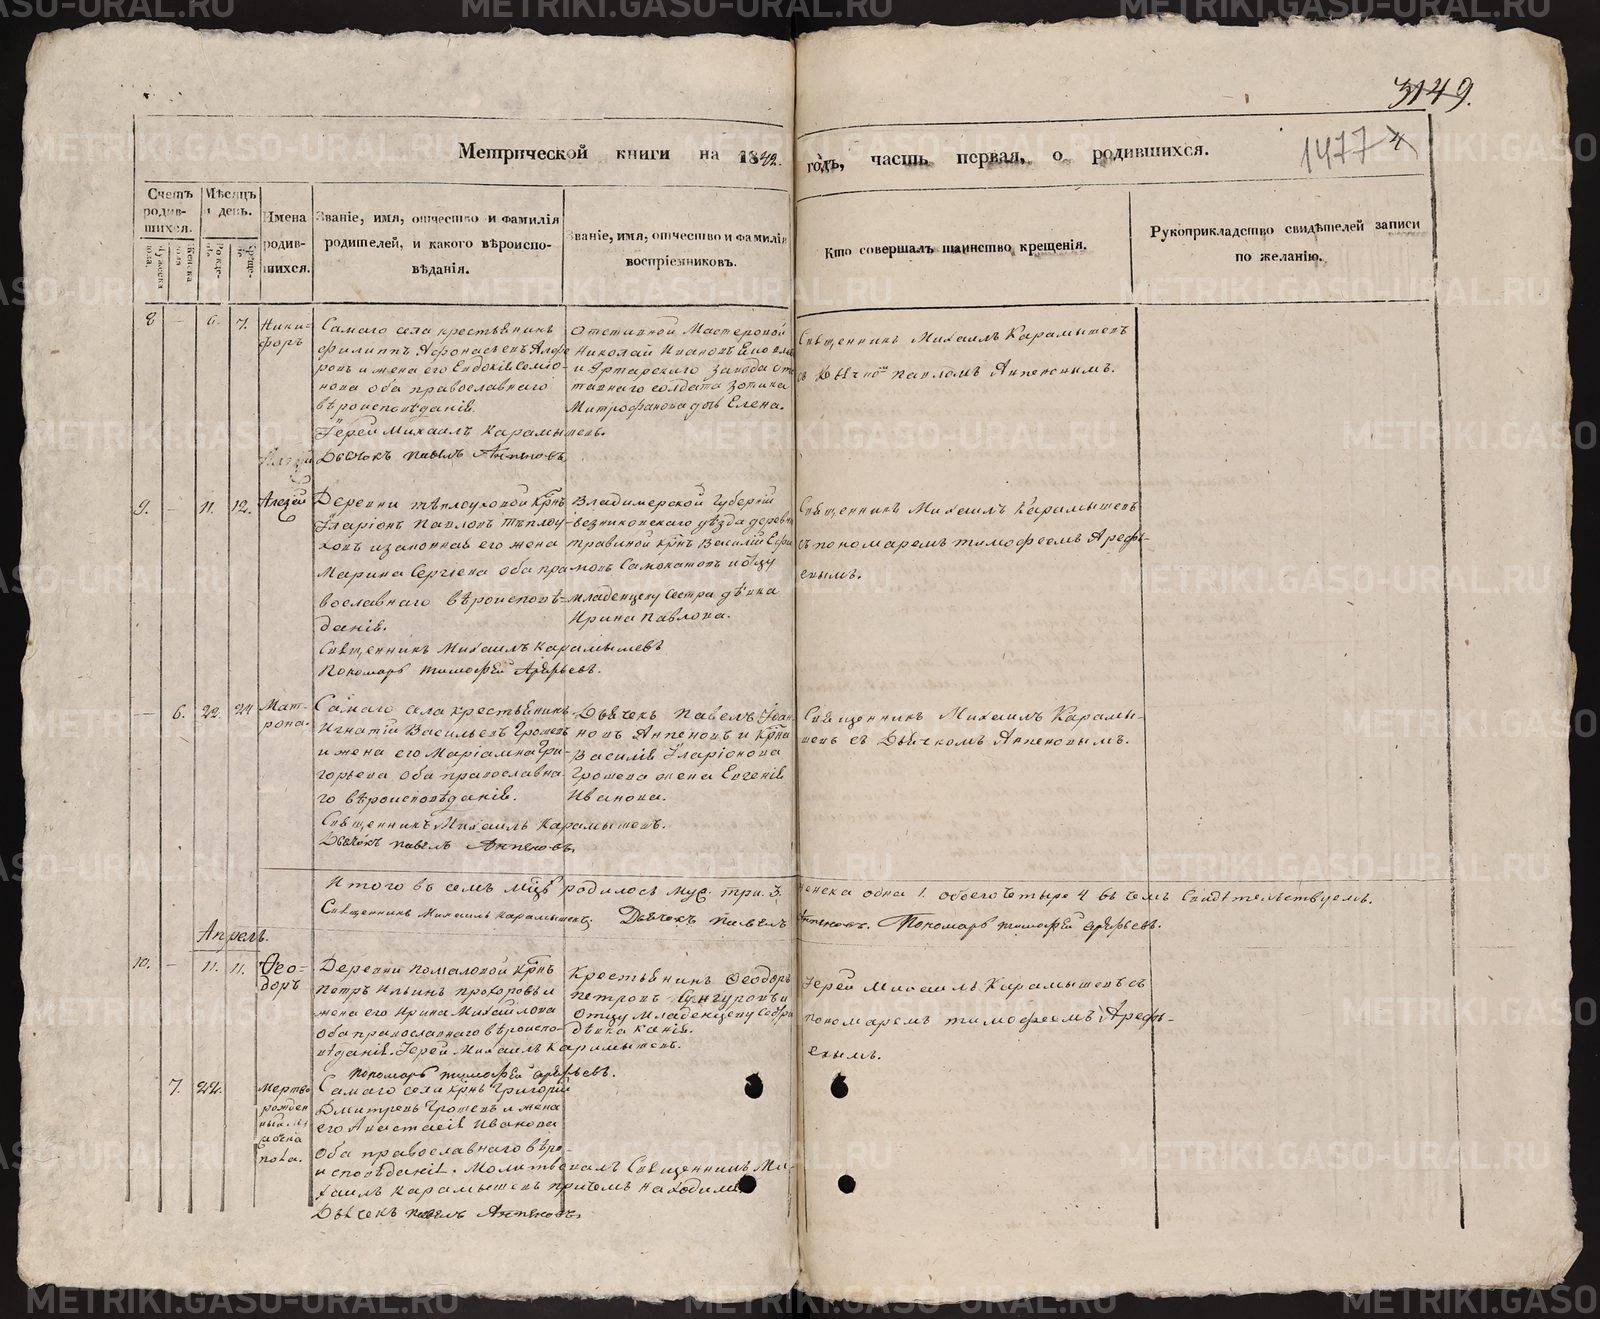 3149.
1477
Метрической книги на 1842. годъ, часть первая, о родившихся.
Счетъ родив-шихся.
Мужеска пола.
Женска пола
Мѣсяцъ и день.
Рожде-нія.
Креще-нія.
Имена родив-шихся.
Званіе, имя, отчество и фамилія
родителей, и какого вѣроиспо-
вѣданія.
Званіе, имя, отчество и фамилія
воспріемниковъ.
Кто совершалъ таинство крещенія.
Рукоприкладство свидѣтелей записи
по желанію.
8 — 6. 7.
Ники-
форъ
Самаго села крестьянинъ
Филиппъ Афонасьевъ Алфе
ровъ и жена его Евдокія Семіо-
нова оба православнаго
вѣроисповѣданія.
Іерей Михаилъ Карамышевъ.
Дьячокъ Павелъ
Отставной Мастеровой
Николай Ивановъ
и Артарскаго завода от
тавнаго солдата Зотика
Митрофанова дчь Елена.
Священникъ Михаилъ Карамышевъ
съ Дьячкомъ Павломъ
9. — 11. 12.
Алезѣй
Деревни Тѣплоуховой крнъ
Іларіонъ Павловъ Тѣплоу-
ховъ и законная его жена
Марина Сергіева оба пра
вославнаго вѣроисповѣ-
данія.
Священникъ Михаилъ Карамышевъ
Пономарь Тимофей Арефьевъ.
Владимерской Губерніи
везниковскаго уѣзда деревни
травиной крнъ Василій Ефи
мовъ Самокатовъ и отцу
младенцеву сестра дѣвка
Ирина Павлова.
Священникъ Михаилъ Карамышевъ
съ пономаремъ тимофеемъ Арефь-
евымъ.
— 6. 22. 24
Мат-
рона.
Самаго села крестьянинъ
Игнатій Васильевъ Грошевъ
и жена его Маріамна Гри-
горьева оба православна-
го вѣроисповѣданія.
Священникъ Михаилъ Карамышевъ.
Дьячокъ Павелъ
Дьячекъ Павелъ Іван
новъ и крна
Василія Іларіонова
Грошева жена Евгенія
Иванова.
Священникъ Михаилъ Карамы-
шевъ съ Дьячкомъ
Итого въ семъ мцѣ родилось муж. три. 3. женска одна 1. обоего четыре 4 въ чемъ Свидѣтельствуемъ.
Священникъ Михаилъ Карамышевъ; Дьячекъ Павелъ
Пономарь Тимофей Арефьевъ.
Апрель.
10. — 11. 11.
Ѳео-
доръ
Деревни Помаловой крнъ
Петръ Ильинъ Прохоровъ и
жена его Ирина Михайлова
оба православнаго вѣроиспо-
вѣданія. Іерей Михаилъ Карамышевъ.
Пономарь Тимофей Арефьевъ.
Крестьянинъ Ѳеодоръ
Петровъ и
Отцу Младенцеву Сестра
дѣвка
Іерей Михаилъ Карамышевъ съ
пономаремъ тимофеемъ Арефь-
евымъ.
7. 22.
Мертво
рожден
Самаго села крнъ Григорій
Дмитревъ Грошевъ и жена
его Анастасія Иванова
оба православнаго вѣро-
исповѣданія. Молитвовалъ Священникъ Ми-
хаилъ Карамышевъ причемъ находился
Дьячекъ Павелъ
METRIKI.GASO-URAL.RU